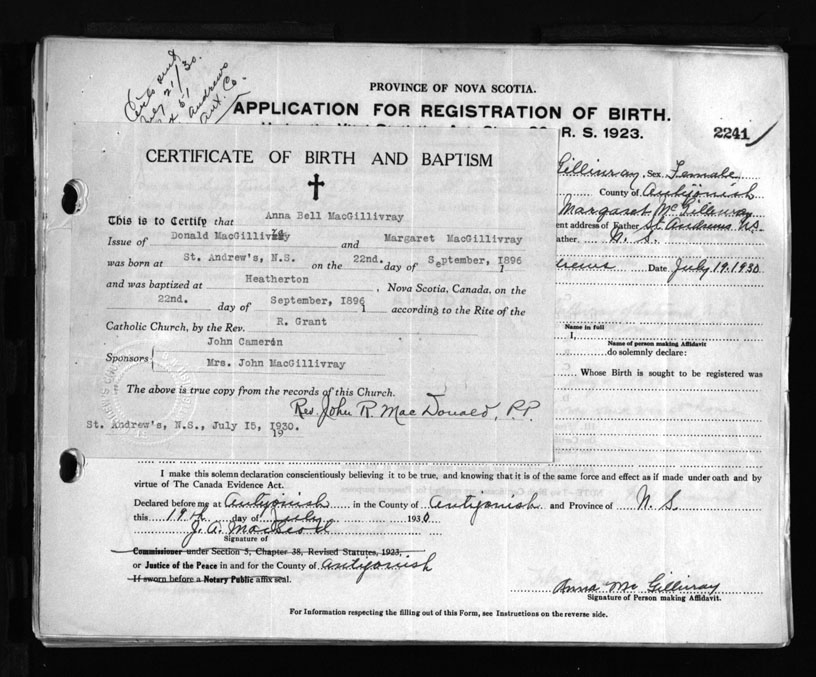 Certs sent
July 21/30.
St Andrews
Ant. Co.
PROVINCE OF NOVA SCOTIA.
APPLICATION FOR REGISTRATION OF BIRTH.
R. S. 1923.
2241
CERTIFICATE OF BIRTH AND BAPTISM
This is to Certify that Anna Bell MacGillivray
Issue of Donald MacGillivray and Margaret MacGillivray
was born at St. Andrew's, N.S. on the 22nd. day of September, 1896
and was baptized at Heatherton, Nova Scotia, Canada, on the
22nd. day of September, 1896 according to the Rite of the
Catholic Church, by the Rev. R. Grant
Sponsors John Cameron
Mrs. John MacGillivray
The above is true copy from the records of this Church.
Rev. John R. MacDonald, P.P.
St. Andrew's, N.S., July 15, 1930.
19
Gillivray Sex Female
County of Antigonish
Margaret McGillivray
ent address of Father St Andrews NS
ather N. S.
drews Date July 19. 1930
Name in full
I,
Name of person making Affidavit
do solemnly declare:
Whose Birth is sought to be registered was
I make this solemn declaration conscientiously believing it to be true, and knowing that it is of the same force and effect as if made under oath and by
virtue of The Canada Evidence Act.
Declared before me at Antigonish in the County of Antigonish and Province of N. S.
this 19th day of July 1930
J. A. MacLeod
Signature of
Commissioner under Section 5, Chapter 38, Revised Statutes, 1923,
or Justice of the Peace in and for the County of Antigonish
If sworn before a Notary Public affix seal.
Anna McGillivray
Signature of Person making Affidavit.
For Information respecting the filling out of this Form, see Instructions on the reverse side.